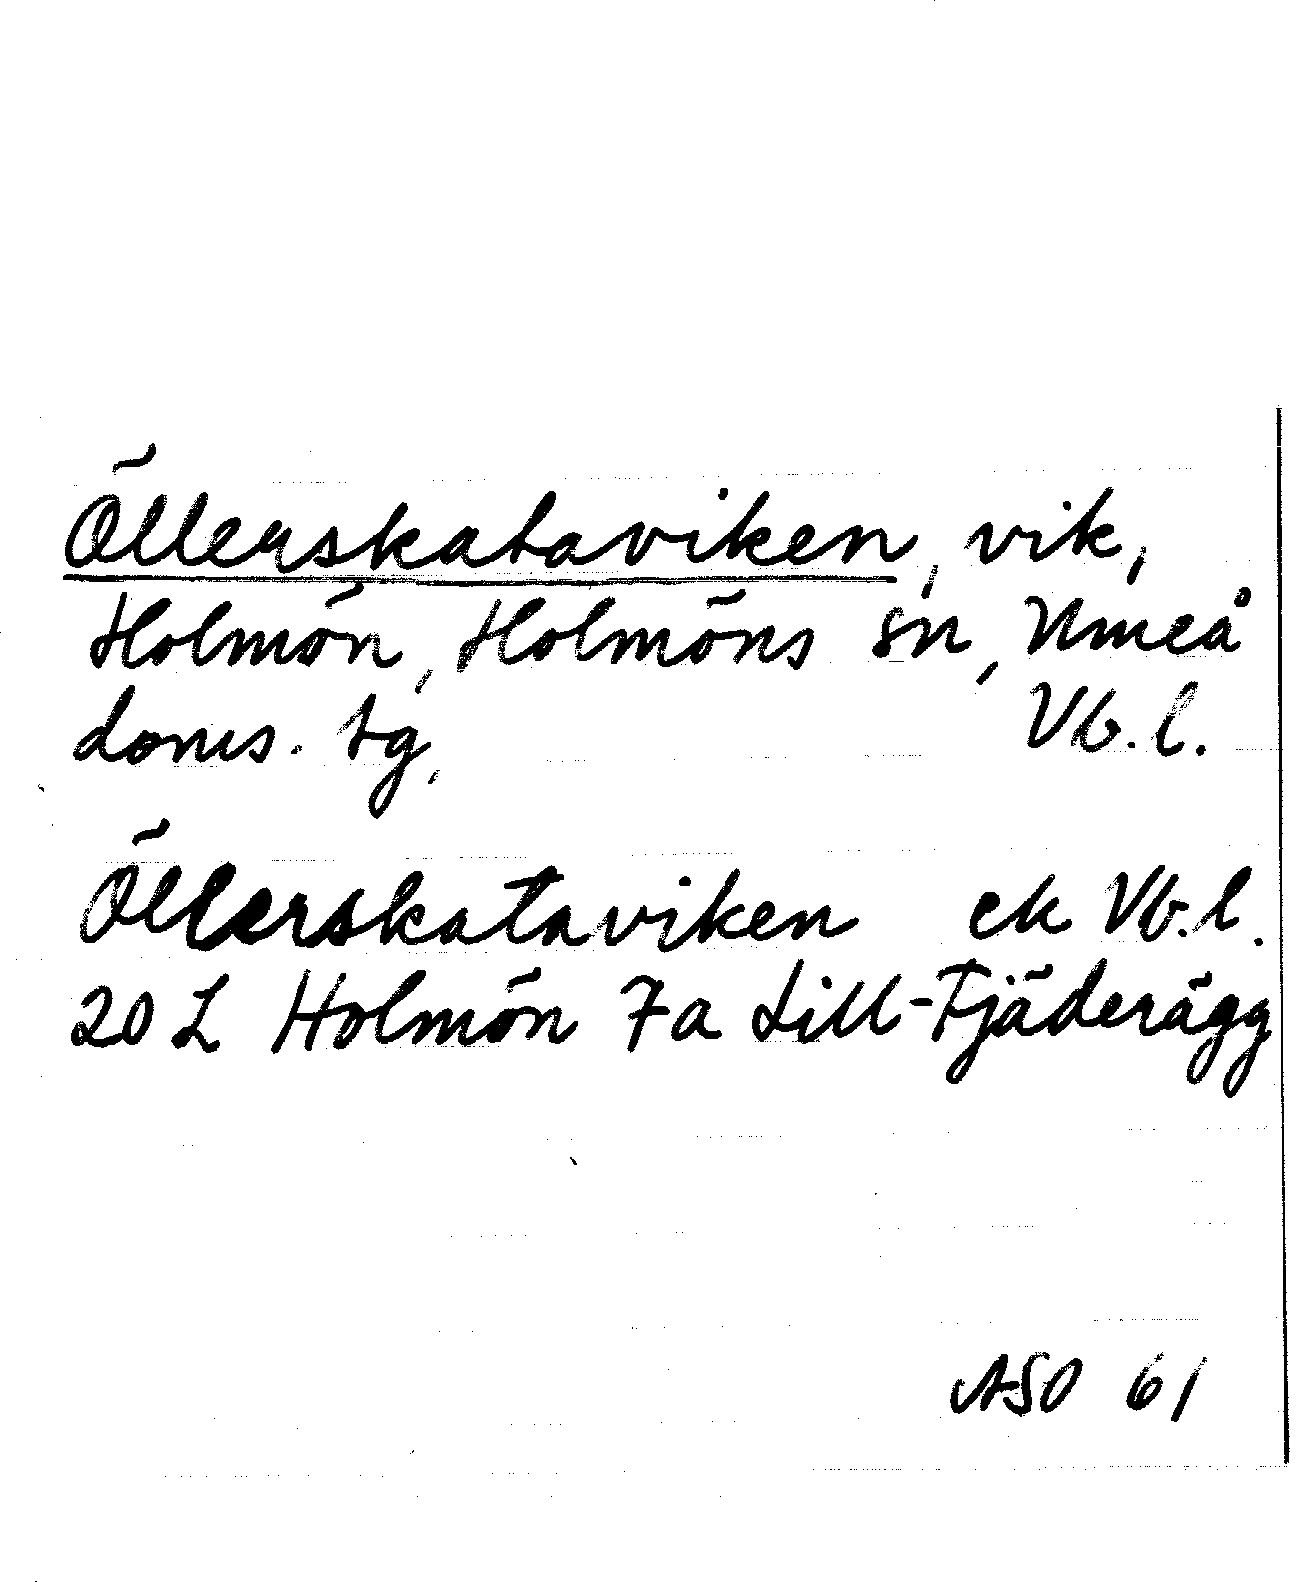 Öllerskataviken, vik,
Holmön, Holmöns sn, Umeå
doms. tg, Vb. l.
Öllerskataviken ek Vb. l.
20 L Holmön 7a Lill-Fjäderägg
ASO 61